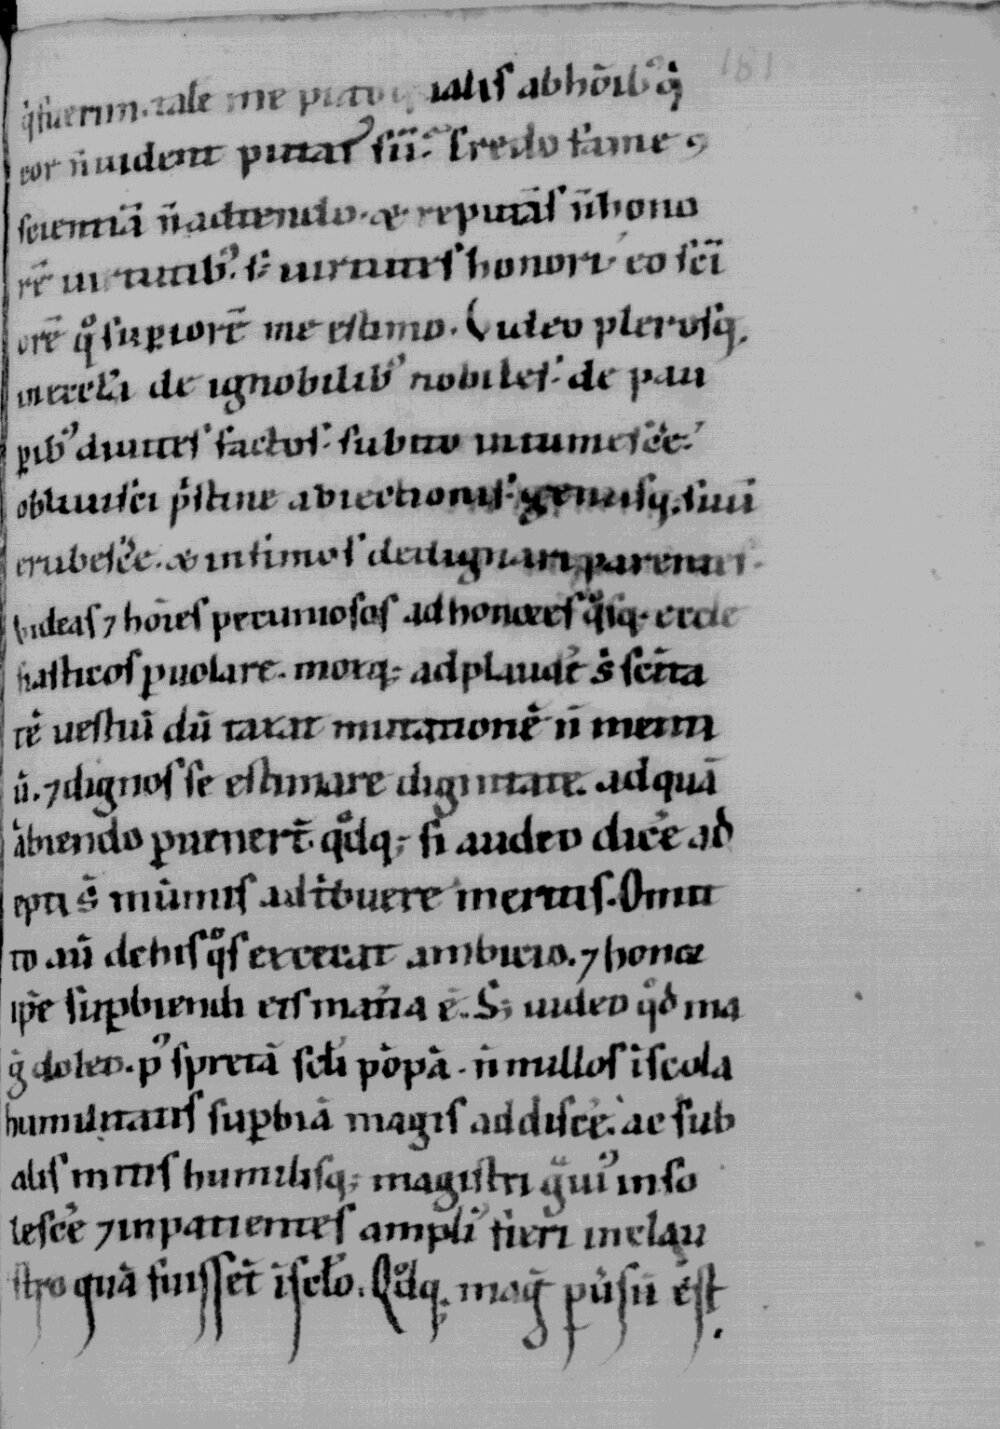 q̇ fuerim. talē me puto qualis ab hōib᷒ q̇
cor n̄ uident putar sū. Credo tam̄ ꝯ
scientiā n̄ adtendo. æ reputās n̄ hono
rē uirtutib᷒. s; uirtutes honori eo sci
orē qͦ suꝑiorē me estimo. Uideo plerosq;
uel de ignobilib᷒ nobiles. de pau
ꝑib᷒ diuites factos. subito intumescere.
obliuisci p̄stine abiectionis. genusq; suū
erubescē. æ infimos dedignari parentes.
Videas ⁊ hōies pecuniosos ad honores qͦsq; eccle
siasticos ꝑuolare. moxq; adplaudē s̄ scita
tē uestiū dū taxat mutationē n̄ menti
ū. ⁊ dignos se estimare dignitate. ad quā
ābiendo ꝑuenerē. qͦdq; si audeo dicē ad
epti s̄ nūmis adtribuere meritis. Omit
to aū de his qͦs excecat ambicio. ⁊ honor
ip̄e suꝑbiendi eis mat̄ia ē. S; uideo qͦd ma
g̊ doleo. p᷒ spretā scli pōpā. n̄ nullos ī scola
humilitatis suꝑbiā magis addiscē. ac sub
alis mitis humilisq; magistri g̊ui᷒ inso
lescē ⁊ inpatientes ampli᷒ fieri in clau
stro quā fuissēt ī sclo. Qͦdq; mag̊ ꝑuersū est.